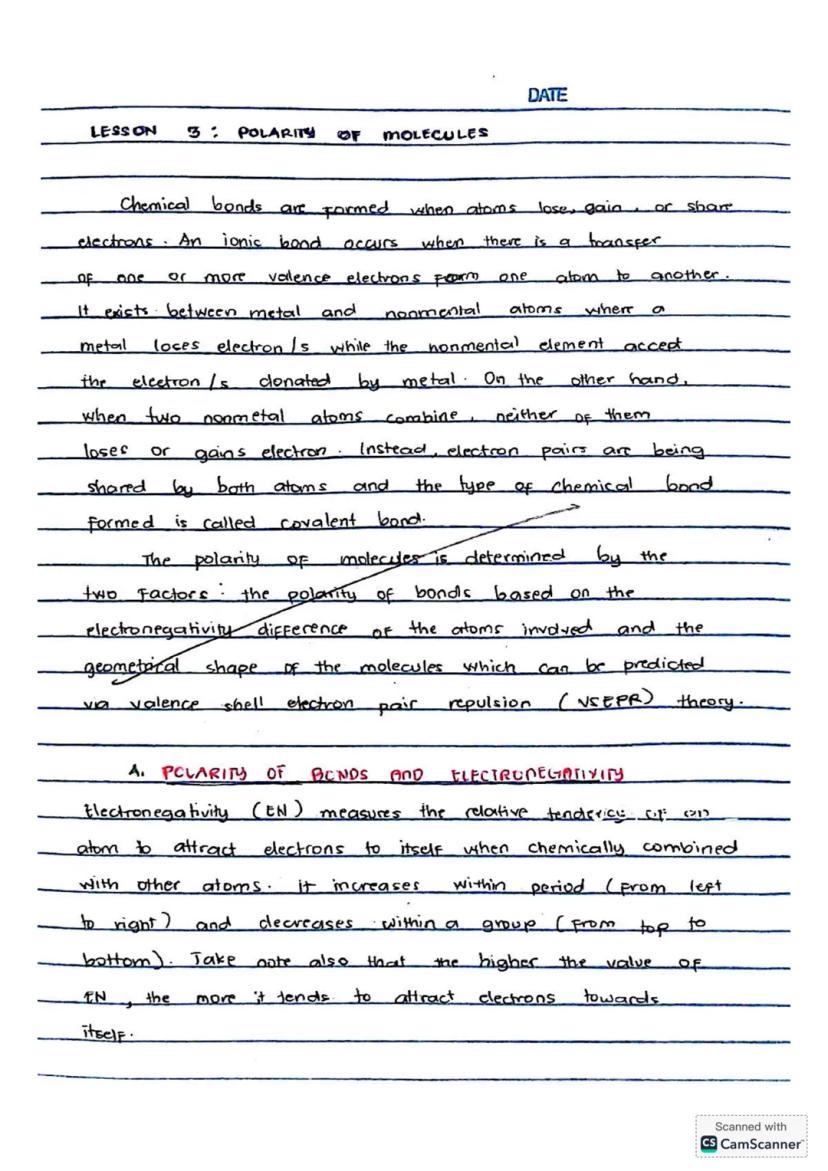 DATE
LESSON 3 : POLARITY OF MOLECULES
Chemical bonds are formed when atoms lose, gain, or share
electrons. An ionic bond occurs when there is a transfer
of one or more valence electrons from one atom to another.
It exists between metal and nonmental atoms where a
metal loses electron/s while the nonmental element accept
the electron/s donated by metal. On the other hand,
when two nonmetal atoms combine, neither of them
loses or gains electron. Instead, electron pairs are being
shared by both atoms and the type of chemical bond
formed is called covalent bond.
The polarity of molecules is determined by the
two factors : the polarity of bonds based on the
electronegativity difference of the atoms involved and the
geometrical shape of the molecules which can be predicted
via valence shell electron pair repulsion (VSEPR) theory.
A. POLARITY OF BONDS AND ELECTRONEGATIVITY
Electronegativity (EN) measures the relative of an
atom to attract electrons to itself when chemically combined
with other atoms. it increases within period (from left
to right) and decreases within a group (from top to
bottom). Take note also that the higher the value of
EN, the more it tends to attract electrons towards
itself.
Scanned with
CS CamScanner